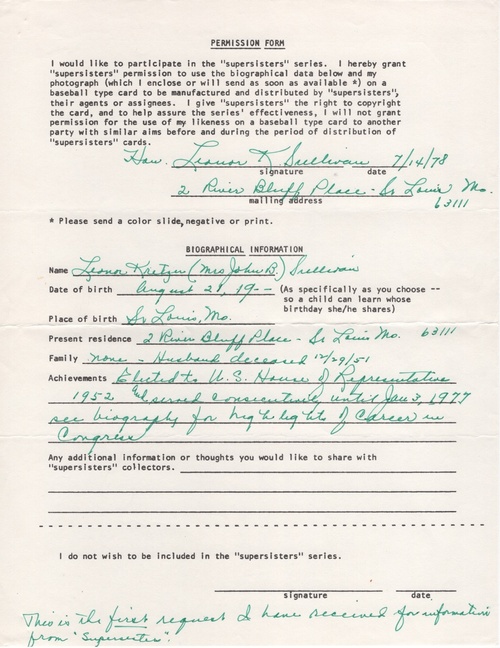 PERMISSION FORM
I would like to participate in the "supersisters" series. I hereby grant
"supersisters" permission to use the biographical data below and my
photograph (which I enclose or will send as soon as available *) on a
baseball type card to be manufactured and distributed by "supersisters",
their agents or assignees. I give "supersisters" the right to copyright
the card, and to help assure the series' effectiveness, I will not grant
permission for the use of my likeness on a baseball type card to another
party with similar aims before and during the period of distribution of
"supersisters" cards.
Hon. Leonor K. Sullivan 7/14/78
signature date
2 River Bluff Place - St Louis Mo.
mailing address 63111
* Please send a color slide,negative or print.
BIOGRAPHICAL INFORMATION
Name Leonor Kretzer (Mrs John B.) Sullivan
Date of birth August 21, 19-- (As specifically as you choose --
so a child can learn whose
birthday she/he shares)
Place of birth St Louis, Mo.
Present residence 2 River Bluff Place - St Louis Mo. 63111
Family none - Husband deceased 12/29/51
Achievements Elected to U.S. House of Representative
1952 and served consecutively until Jan 3, 1977
see biography for highlights of Career in
Congress
Any additional information or thoughts you would like to share with
"supersisters" collectors.
I do not wish to be included in the "supersisters" series.
signature date
This is the first request I have received for information
from "Supersisters".